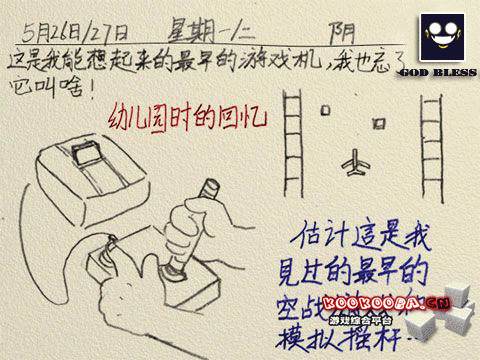 5月26日/27日 星期一/二 阴
GOD BLESS
这是我能想起来的最早的游戏机,我也忘了
它叫啥!
幼儿园时的回忆
估计這是我
見过的最早的
空战
KOOKOOBA.CN
游戏综合平台
模拟摇杆…